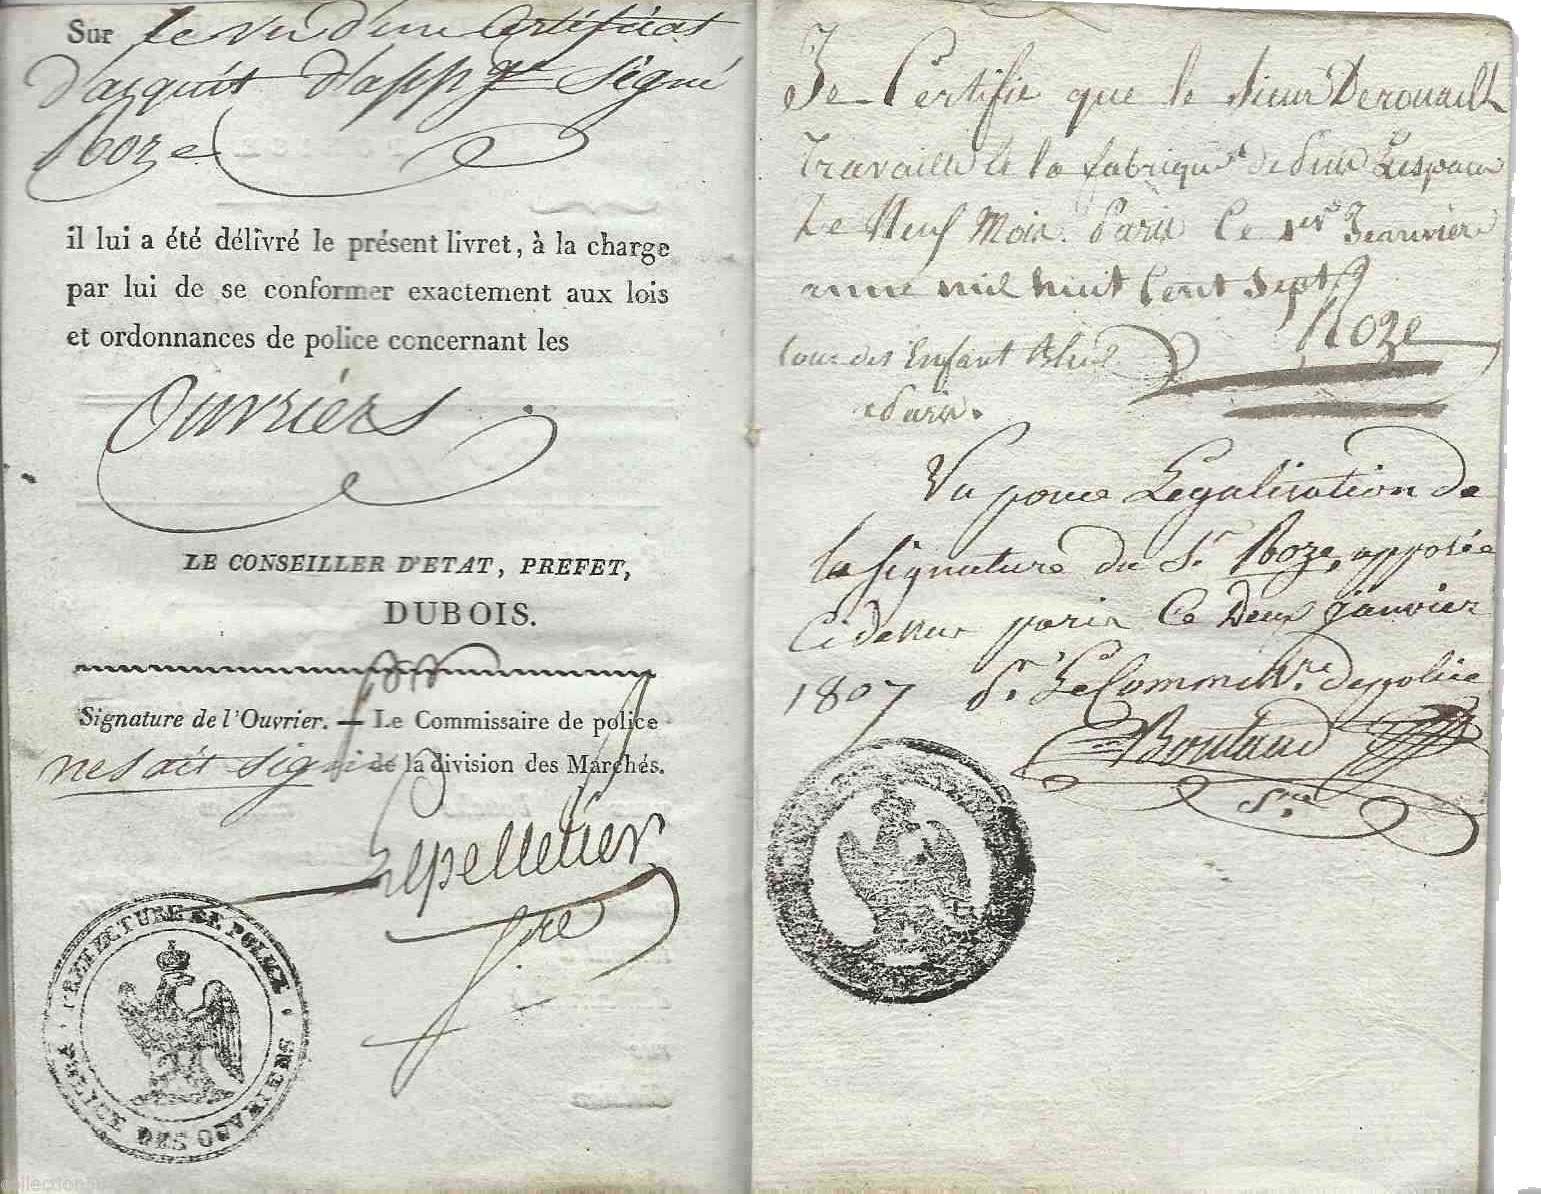 Sur le vu d'un Certificat
d'acquit d'app.ge signé
Roze
il lui a été délivré le présent livret, à la charge
par lui de se conformer exactement aux lois
et ordonnances de police concernant les
Ouvriérs
LE CONSEILLER D'ETAT, PREFET,
DUBOIS.
Signature de l'Ouvrier. — Le Commissaire de police
ne sait signé de la division des Marchés.
Lepelletier
PREFECTURE DE POLICE
POLICE DES OUVRIERS
Je Certifie que le sieur Derouault
travaille la fabrique de
Neuf Mois. Paris Ce 1er Jeanvier
mil huit Cent Sept
Roze
Cour des Enfant Bleu
a Paris.
Vu pour Legalisation de
la signature du Sr. Roze, apposée
Cidessus paris Ce Deux janvier
1807 Le Commissre. de police
Sre.